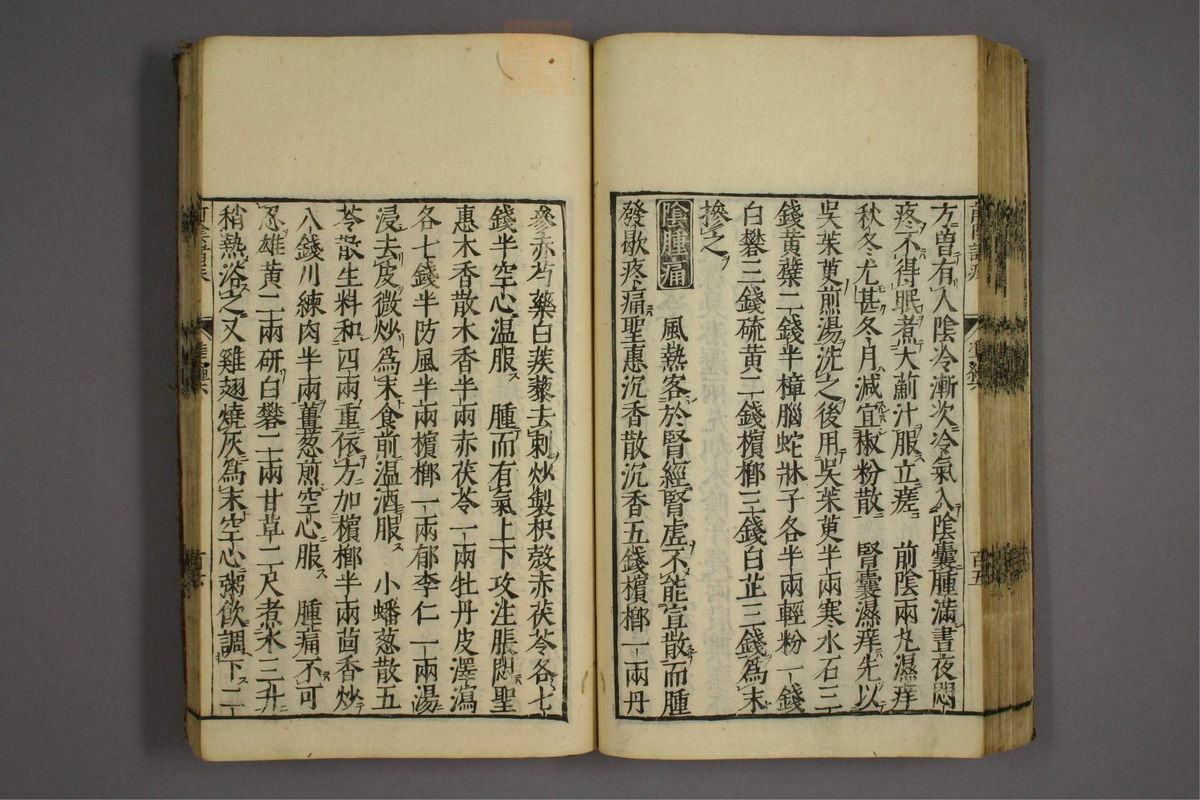 方曽有人陰冷漸次冷氣入陰囊腫滿晝夜悶
疼不得眠煮大薊汁服立瘥 前陰兩丸濕痒
秋冬尤甚冬月減宜椒粉散 腎囊濕痒先以
吳茱萸煎湯洗之後用吳茱萸半兩寒水石三
錢黃蘗二錢半樟腦蛇牀子各半兩輕粉一錢
白礬三錢硫黃二錢檳榔三錢白芷三錢爲末
摻之
陰腫痛 風熱客於腎經腎虛不能宣散而腫
發歇疼痛聖惠沉香散沉香五錢檳榔一兩丹
參赤芍藥白蒺藜去刺炒製枳殼赤茯苓各七
錢半空心温服 腫而有氣上下攻注脹悶聖
惠木香散木香半兩赤茯苓一兩牡丹皮澤瀉
各七錢半防風半兩檳榔一兩郁李仁一兩湯
浸去皮微炒爲末食前温酒服 小蟠葱散五
苓散生料和四兩重依方加檳榔半兩茴香炒
入錢川練肉半兩薑葱煎空心服 腫痛不可
忍雄黃二兩研白礬二兩甘草二尺煮水三升
稍熱浴之又雞翅燒灰爲末空心粥飲調下二
百五